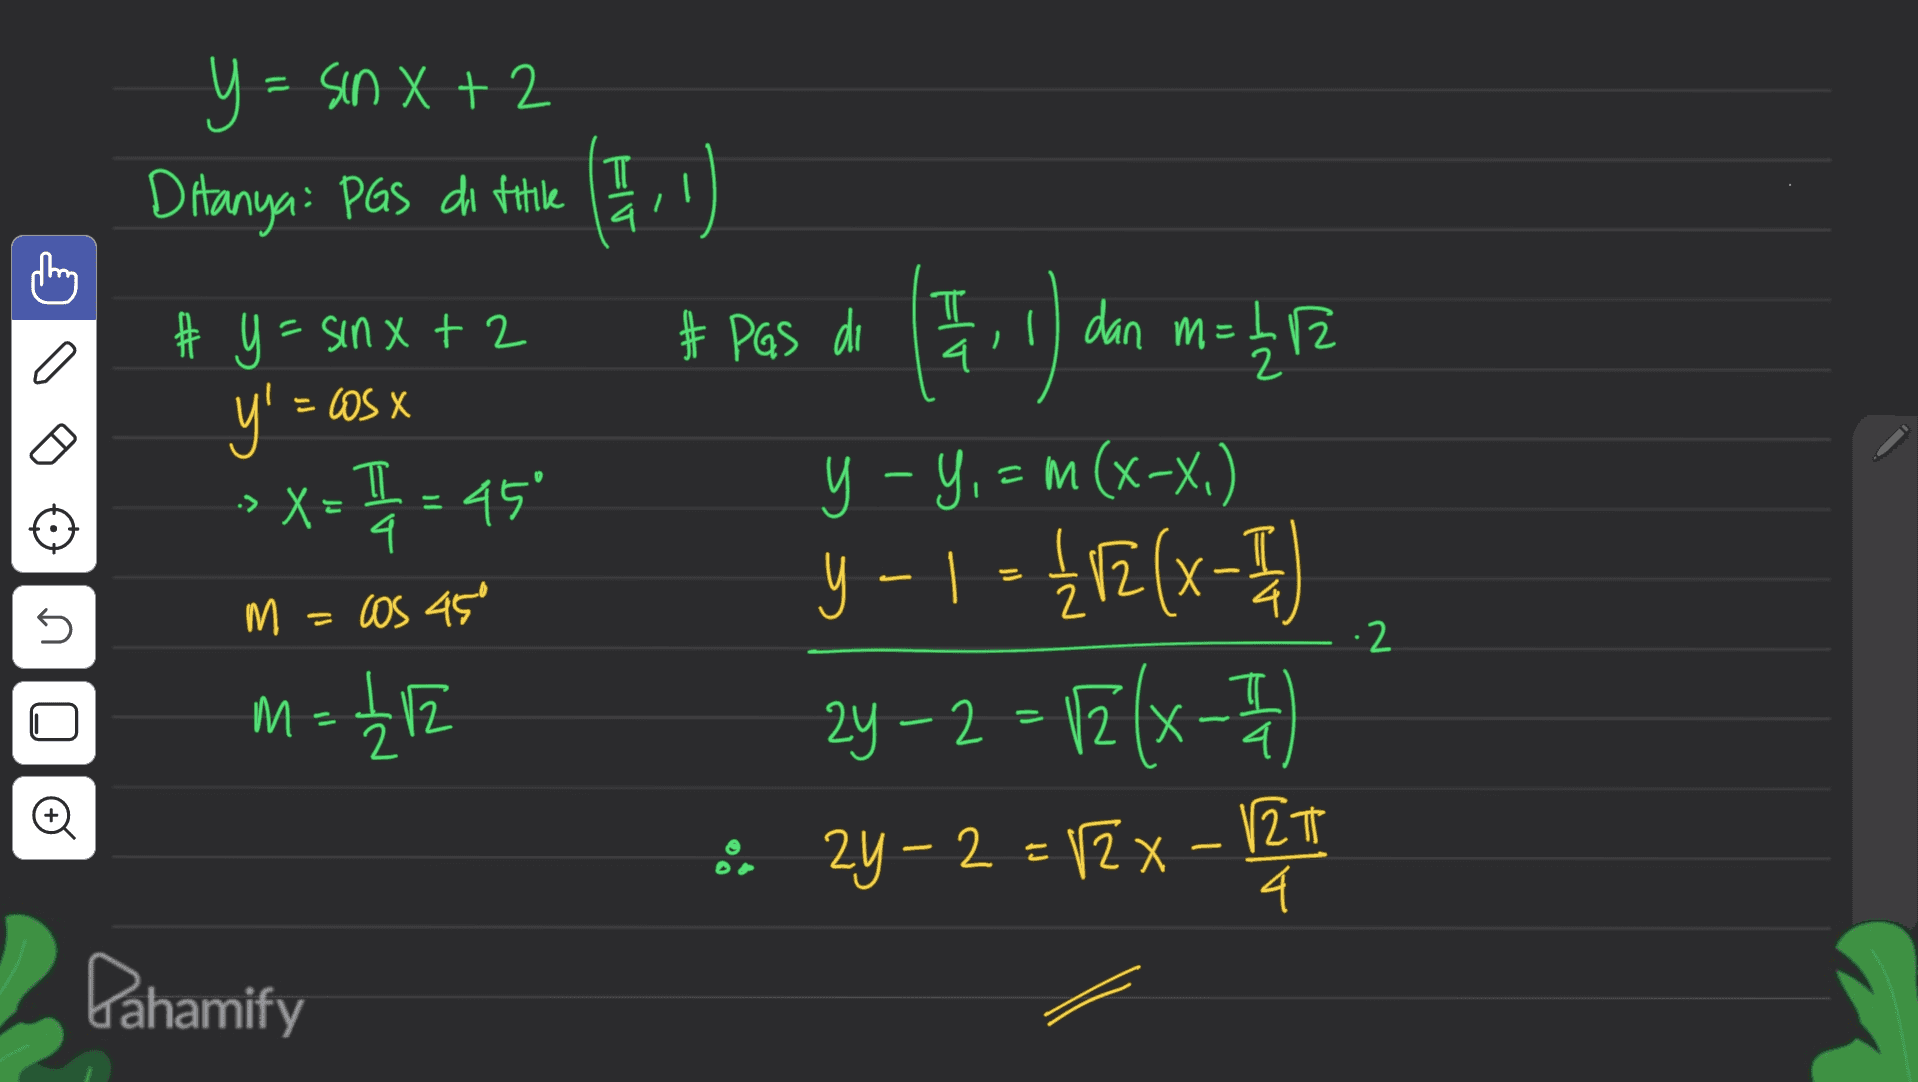 y = sin x + 2
Ditanya: PGS di titik (π/4, 1)
# y = sin x + 2
y' = cos x
:> x = π/4 = 45°
m = cos 45°
m = 1/2 √2
# PGS di (π/4, 1) dan m = 1/2 √2
y - y₁ = m (x - x₁)
y - 1 = 1/2 √2 (x - π/4)
.2
2y - 2 = √2 (x - π/4)
∴ 2y - 2 = √2 x - √2 π/4
Pahamify